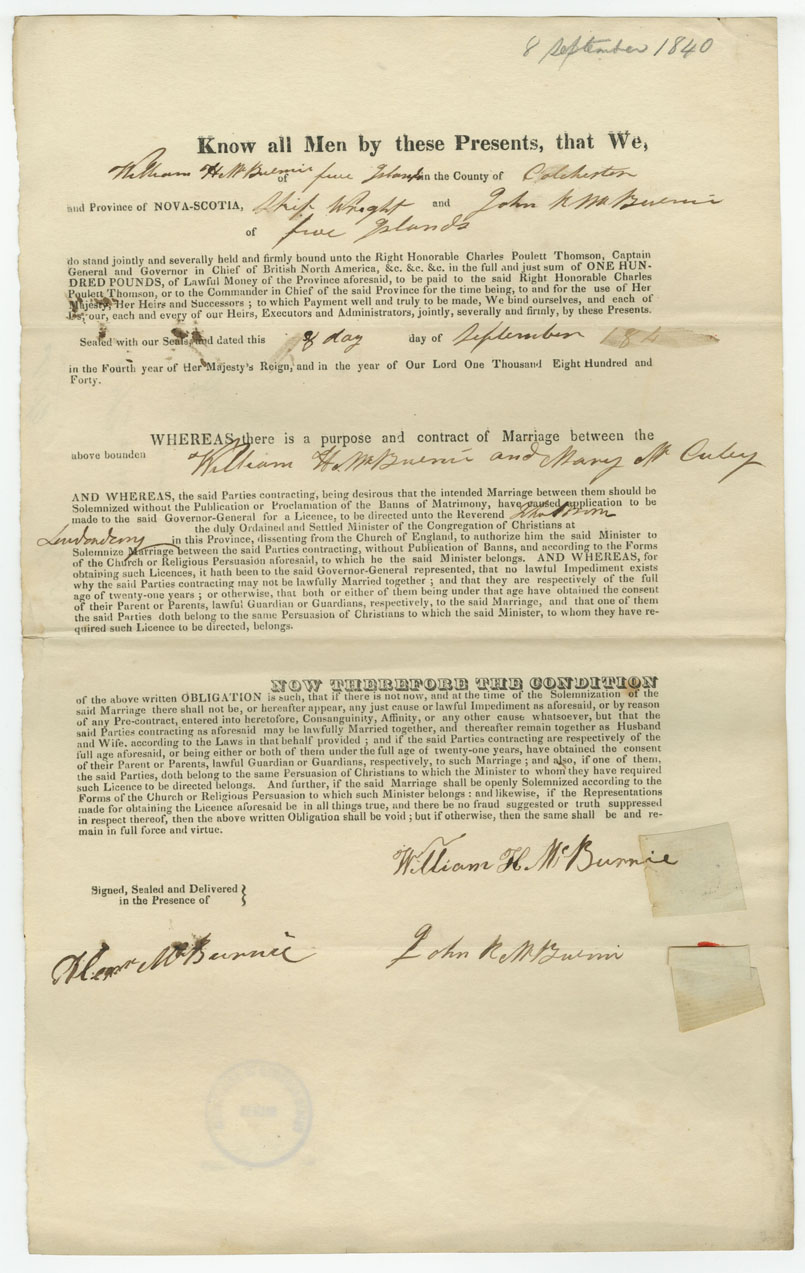 8 September 1840
Know all Men by these Presents, that We,
William H. McBurnie of five Islands in the County of Colchester
and Province of NOVA-SCOTIA, Ship Wright and John R McBurnie
of five Islands
do stand jointly and severally held and firmly bound unto the Right Honorable Charles Poulett Thomson, Captain
General and Governor in Chief of British North America, &c. &c. &c. in the full and just sum of ONE HUN-
DRED POUNDS, of Lawful Money of the Province aforesaid, to be paid to the said Right Honorable Charles
Poulett Thomson, or to the Commander in Chief of the said Province for the time being, to and for the use of Her
Majesty, Her Heirs and Successors ; to which Payment well and truly to be made, We bind ourselves, and each of
Us, our, each and every of our Heirs, Executors and Administrators, jointly, severally and firmly, by these Presents.
Sealed with our Seals, and dated this 8 day day of September 184
in the Fourth year of Her Majesty's Reign, and in the year of Our Lord One Thousand Eight Hundred and
Forty.
WHEREAS there is a purpose and contract of Marriage between the
above bounden William H. McBurnie and Mary Mc Culey
AND WHEREAS, the said Parties contracting, being desirous that the intended Marriage between them should be
Solemnized without the Publication or Proclamation of the Banns of Matrimony, have caused application to be
made to the said Governor-General for a Licence, to be directed unto the Reverend
the duly Ordained and Settled Minister of the Congregation of Christians at
Londonderry in this Province, dissenting from the Church of England, to authorize him the said Minister to
Solemnize Marriage between the said Parties contracting, without Publication of Banns, and according to the Forms
of the Church or Religious Persuasion aforesaid, to which he the said Minister belongs. AND WHEREAS, for
obtaining such Licences, it hath been to the said Governor-General represented, that no lawful Impediment exists
why the said Parties contracting may not be lawfully Married together ; and that they are respectively of the full
age of twenty-one years ; or otherwise, that both or either of them being under that age have obtained the consent
of their Parent or Parents, lawful Guardian or Guardians, respectively, to the said Marriage, and that one of them
the said Parties doth belong to the same Persuasion of Christians to which the said Minister, to whom they have re-
quired such Licence to be directed, belongs.
NOW THEREFORE THE CONDITION
of the above written OBLIGATION is such, that if there is not now, and at the time of the Solemnization of the
said Marriage there shall not be, or hereafter appear, any just cause or lawful Impediment as aforesaid, or by reason
of any Pre-contract, entered into heretofore, Consanguinity, Affinity, or any other cause whatsoever, but that the
said Parties contracting as aforesaid may be lawfully Married together, and thereafter remain together as Husband
and Wife. according to the Laws in that behalf provided ; and if the said Parties contracting are respectively of the
full age aforesaid, or being either or both of them under the full age of twenty-one years, have obtained the consent
of their Parent or Parents, lawful Guardian or Guardians, respectively, to such Marriage ; and also, if one of them,
the said Parties, doth belong to the same Persuasion of Christians to which the Minister to whom they have required
such Licence to be directed belongs. And further, if the said Marriage shall be openly Solemnized according to the
Forms of the Church or Religious Persuasion to which such Minister belongs : and likewise, if the Representations
made for obtaining the Licence aforesaid be in all things true, and there be no fraud suggested or truth suppressed
in respect thereof, then the above written Obligation shall be void ; but if otherwise, then the same shall be and re-
main in full force and virtue.
William H. McBurnie
Signed, Sealed and Delivered
in the Presence of
McBurnie
John R McBurnie